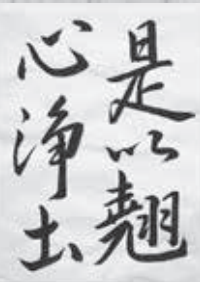 是以翘
心淨土